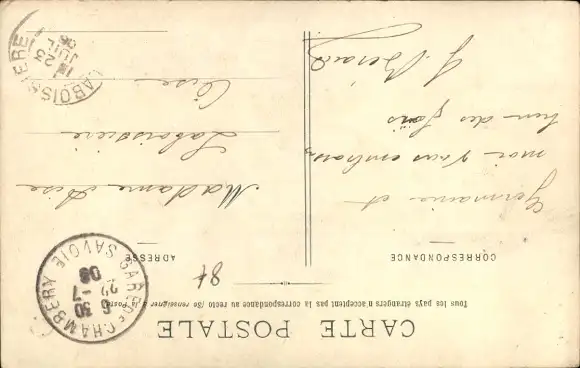 CARTE POSTALE
Tous les pays étrangers n'acceptent pas la correspondance au recto (Se renseigner à la Poste)
CORRESPONDANCE
ADRESSE
84
GARE DE CHAMBERY SAVOIE
6 30
22 -7
08
Germaine et
moi vous embrass
des fois
J. Bérard
Madame
Laboissière
Oise
LABOISSIERE
23
JUIL
08